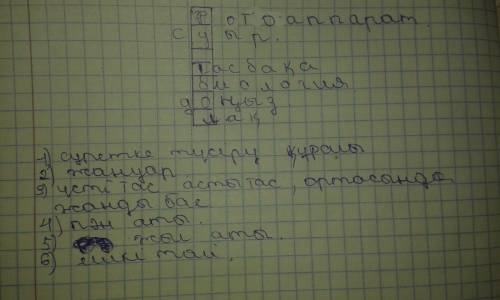 Фотоаппарат.
Суыр.
Тасбақа
Биология
Доңыз
Лақ
1) суретке түсіру құралы
2) жануар
3) үсті тас асты тас, ортасында
жанды бас
4) пән аты.
5) жыл аты.
6) ешкі